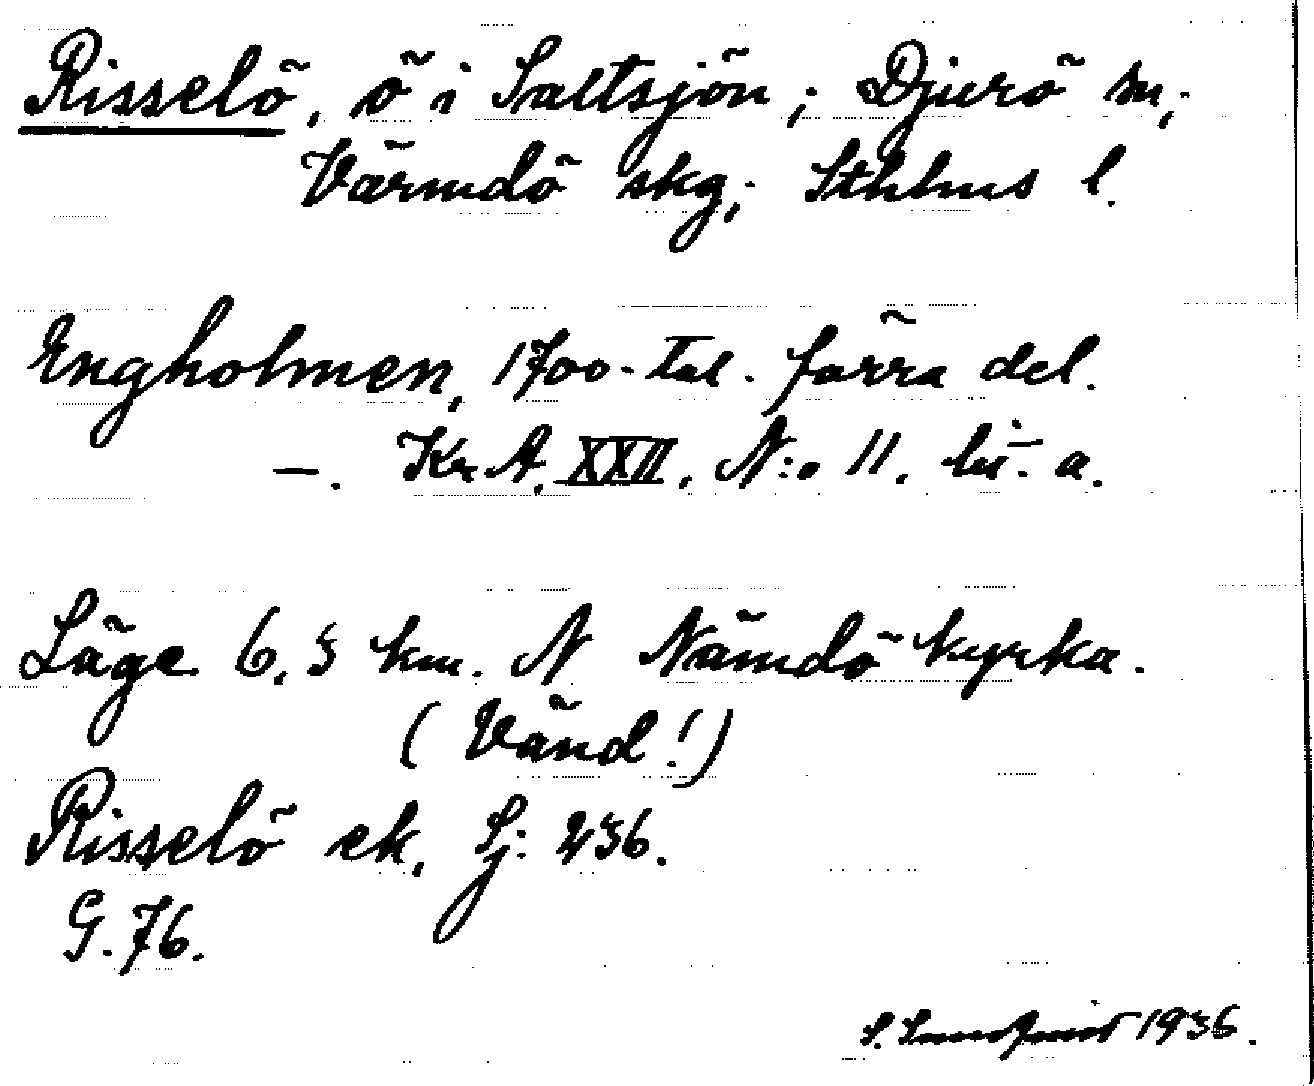 Risselö, ö i Saltsjön; Djurö sn,
Värmdö skg; Sthlms l.
Engholmen, 1700-tal. förra del.
—. Kr A. XXII. N:o 11. lit. a.
Läge 6,5 km. N Nämdö kyrka.
(Vänd!)
Risselö ek. Sj: 236.
G. 76.
S. 1936.